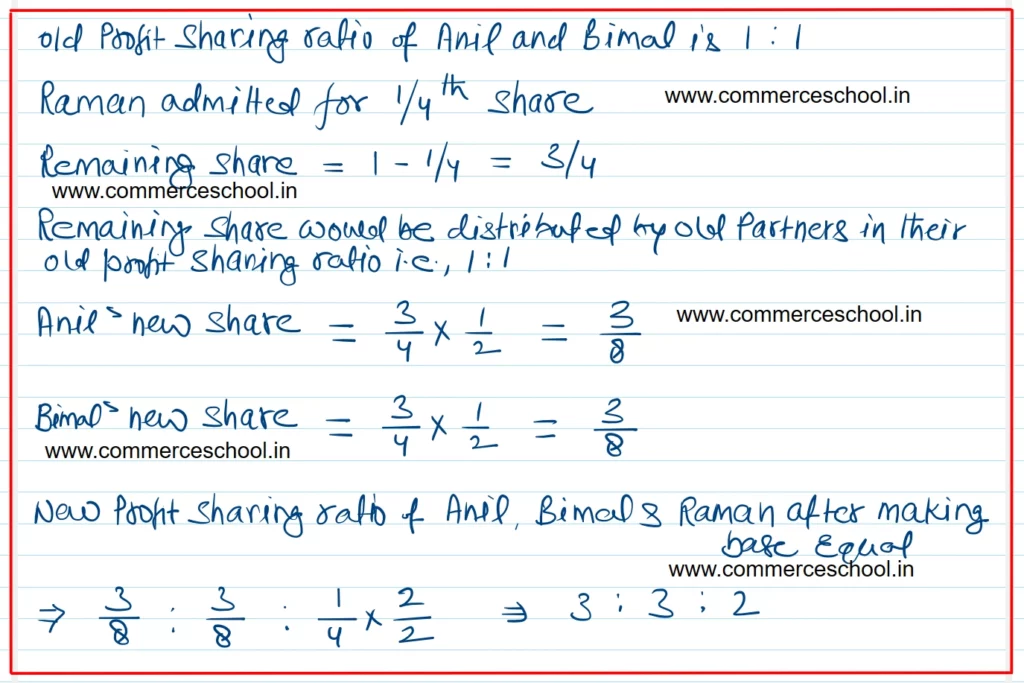 old Profit sharing ratio of Anil and Bimal is 1 : 1
Raman admitted for 1/4th share
www.commerceschool.in
Remaining share = 1 - 1/4 = 3/4
www.commerceschool.in
Remaining share would be distributed by old Partners in their
old profit sharing ratio i.e., 1:1
Anil's new share = 3/4 × 1/2 = 3/8
www.commerceschool.in
Bimal's new share = 3/4 × 1/2 = 3/8
www.commerceschool.in
New Profit sharing ratio of Anil, Bimal & Raman after making
base Equal
www.commerceschool.in
⇒ 3/8 : 3/8 : 1/4 × 2/2 ⇒ 3 : 3 : 2